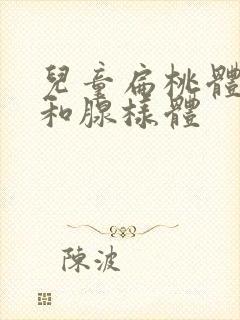 兒童扁桃體
和腺樣體
陳波